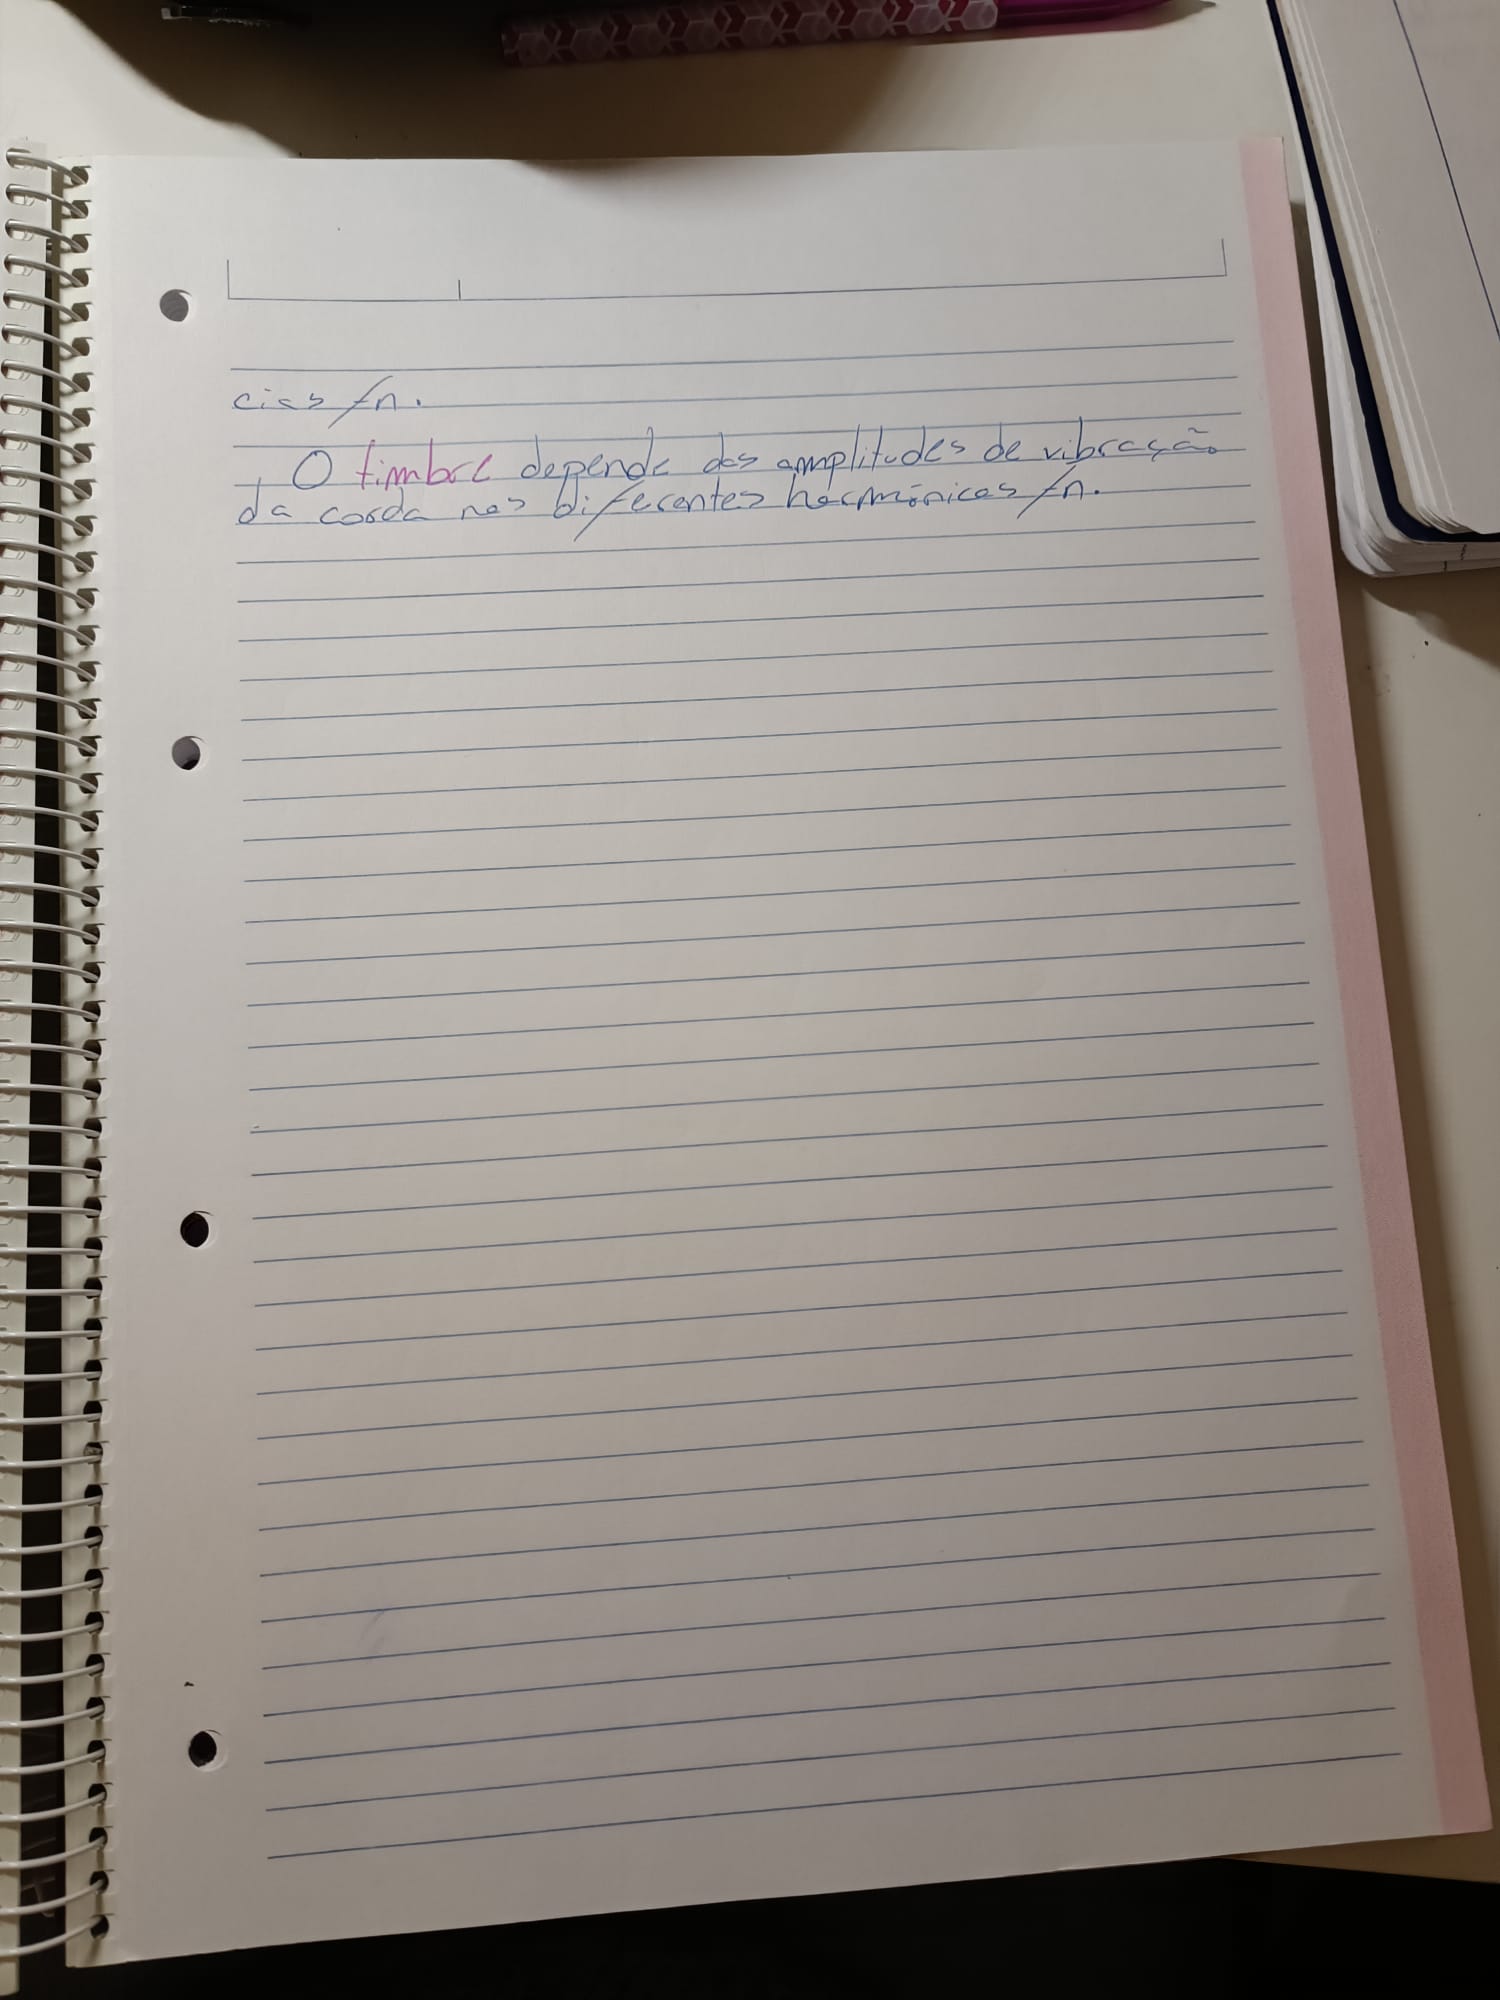 cias fn.
O timbre depende das amplitudes de vibração
da corda nos diferentes harmónicos fn.